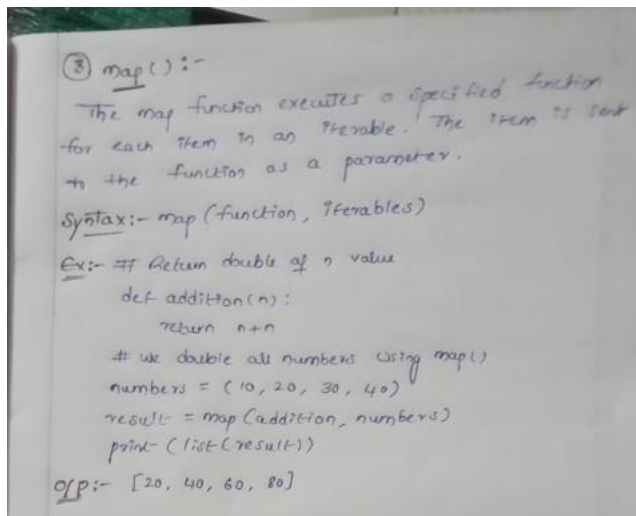 ③ map() :-
The map function executes a specified function
for each item in an iterable. The item is sent
to the function as a parameter.
Syntax:- map (function, iterables)
Ex:- # Return double of n value
def addition(n):
return n+n
# we double all numbers using map()
numbers = (10, 20, 30, 40)
result = map (addition, numbers)
print (list (result))
o/p:- [20, 40, 60, 80]